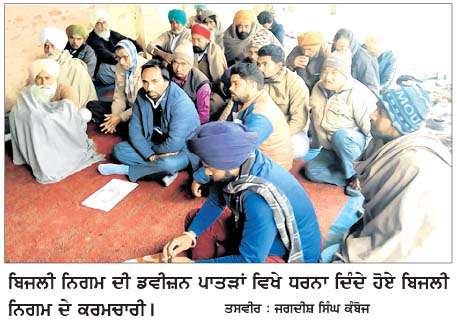 ਬਿਜਲੀ ਨਿਗਮ ਦੀ ਡਵੀਜ਼ਨ ਪਾਤੜਾਂ ਵਿਖੇ ਧਰਨਾ ਦਿੰਦੇ ਹੋਏ ਬਿਜਲੀ
ਨਿਗਮ ਦੇ ਕਰਮਚਾਰੀ। ਤਸਵੀਰ : ਜਗਦੀਸ਼ ਸਿੰਘ ਕੰਬੋਜ